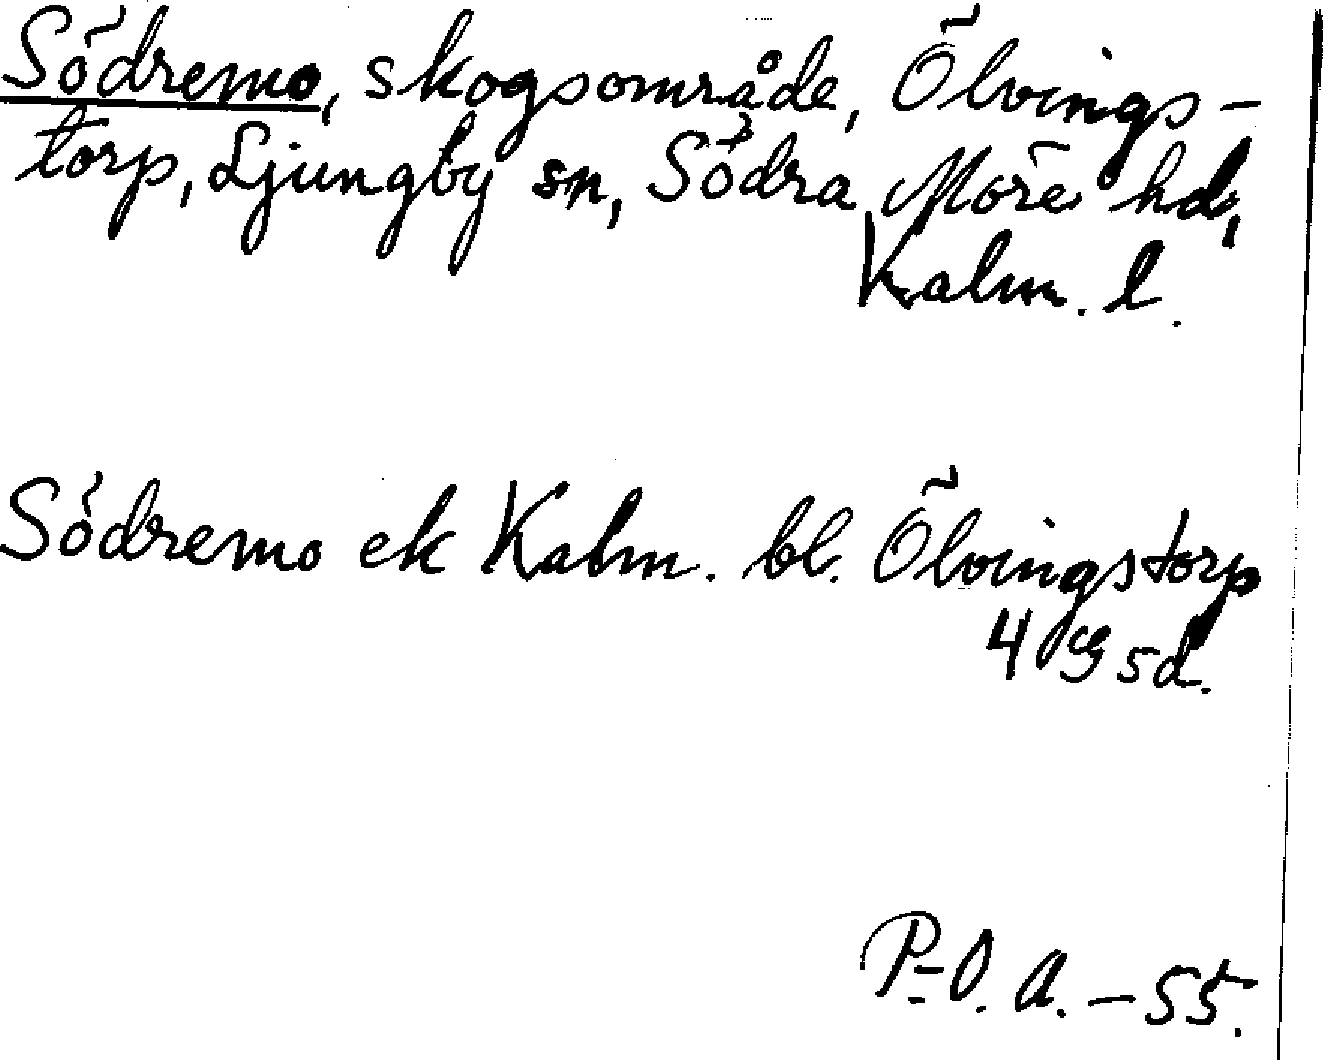 Södremo, skogsområde, Ölvings-
torp, Ljungby sn, Södra Möre hd,
Kalm. l.
Södremo ek Kalm. bl. Ölvingstorp
4 g sd.
P-O. A. - 55.